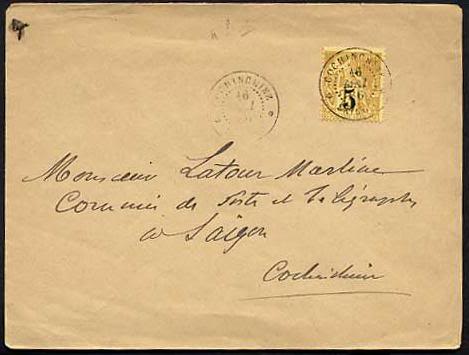 COCHINCHINE
16
COCHINCHINE
16
5
Monsieur Latour Martine
Commis de Postes et Télégraphes
à Saïgon
Cochinchine